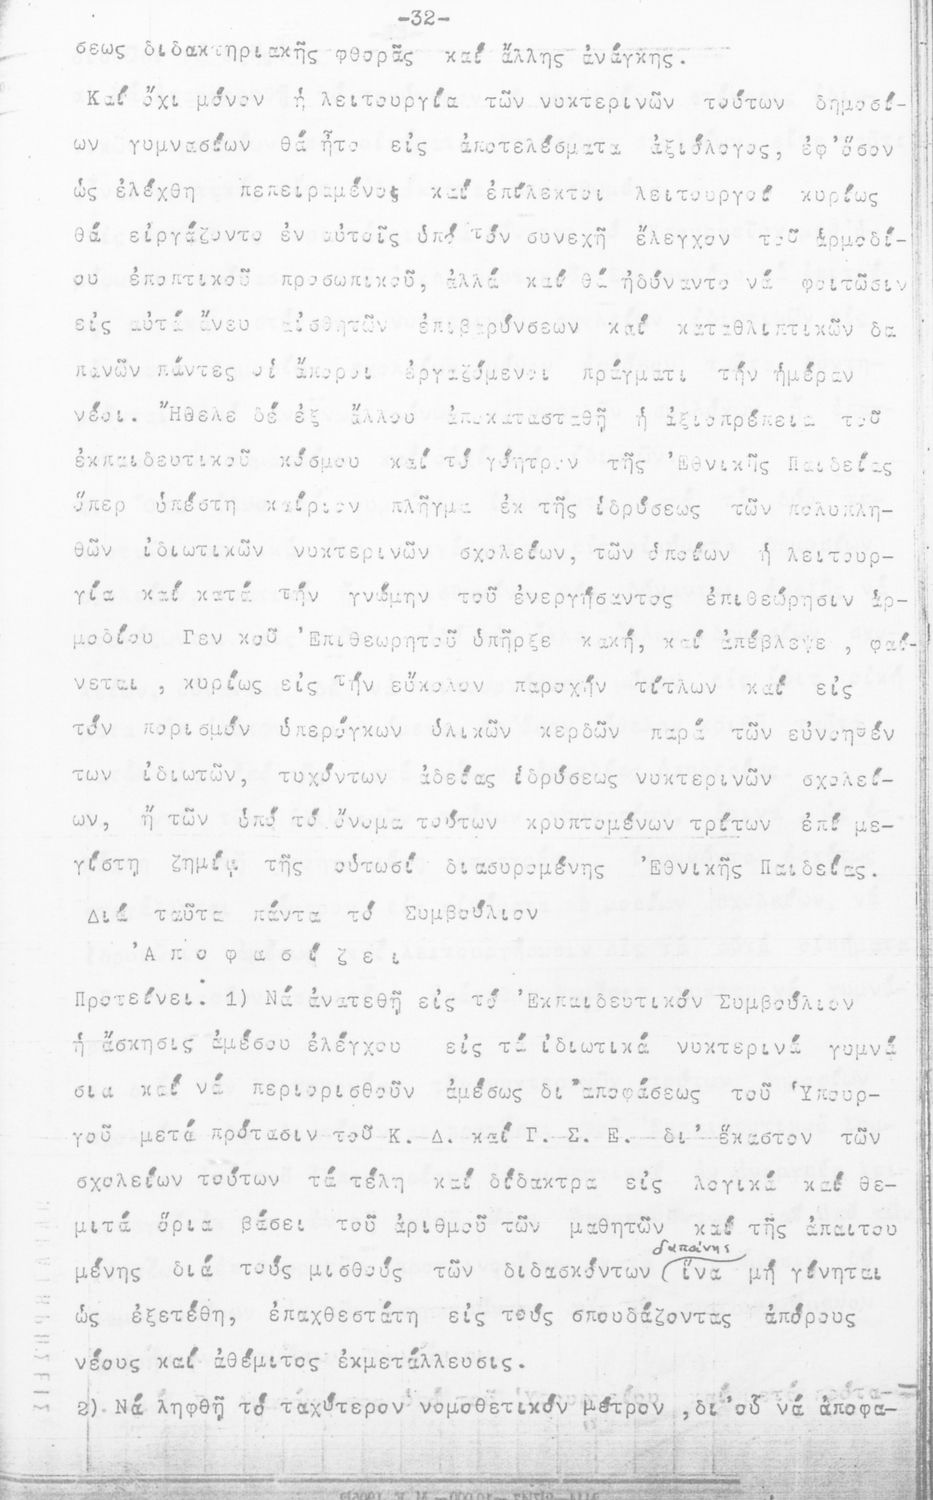 -32-
σεως διδακτηριακῆς φθορᾶς καί ἄλλης ἀνάγκης.
Καί ὄχι μόνον ἡ λειτουργία τῶν νυκτερινῶν τούτων δημοσί-
ων γυμνασίων θά ἦτο εἰς ἀποτελέσματα ἀξιόλογος, ἐφ'ὅσον
ὡς ἐλέχθη πεπειραμένοι καί ἐπίλεκτοι λειτουργοί κυρίως
θά εἰργάζοντο ἐν αὐτοῖς ὑπό τόν συνεχῆ ἔλεγχον τοῦ ἁρμοδί-
ου ἐποπτικοῦ προσωπικοῦ, ἀλλά καί θά ἠδύναντο νά φοιτῶσιν
εἰς αὐτά ἄνευ αἰσθητῶν ἐπιβαρύνσεων καί καταθλιπτικῶν δα
πανῶν πάντες οἱ ἄποροι ἐργαζόμενοι πράγματι τήν ἡμέραν
νέοι. Ἤθελε δέ ἐξ ἄλλου ἀποκατασταθῆ ἡ ἀξιοπρέπεια τοῦ
ἐκπαιδευτικοῦ κόσμου καί τό γόητρον τῆς Ἐθνικῆς Παιδείας
ὅπερ ὑπέστη καίριον πλῆγμα ἐκ τῆς ἱδρύσεως τῶν πολυπλη-
θῶν ἰδιωτικῶν νυκτερινῶν σχολείων, τῶν ὁποίων ἡ λειτουρ-
γία καί κατά τήν γνώμην τοῦ ἐνεργήσαντος ἐπιθεώρησιν ἁρ-
μοδίου Γεν κοῦ Ἐπιθεωρητοῦ ὑπῆρξε κακή, καί ἀπέβλεψε , φαί-
νεται , κυρίως εἰς τήν εὔκολον παροχήν τίτλων καί εἰς
τόν πορισμόν ὑπερόγκων ὑλικῶν κερδῶν παρά τῶν εὐνοηθέν
των ἰδιωτῶν, τυχόντων ἀδείας ἱδρύσεως νυκτερινῶν σχολεί-
ων, ἤ τῶν ὑπό τό ὄνομα τούτων κρυπτομένων τρίτων ἐπί με-
γίστη ζημίᾳ τῆς οὑτωσί διασυρομένης Ἐθνικῆς Παιδείας.
Διά ταῦτα πάντα τό Συμβούλιον
Ἀ π ο φ α σ ί ζ ε ι
Προτείνει: 1) Νά ἀνατεθῆ εἰς τό Ἐκπαιδευτικόν Συμβούλιον
ἡ ἄσκησις ἀμέσου ἐλέγχου εἰς τά ἰδιωτικά νυκτερινά γυμνά
σια καί νά περιορισθοῦν ἀμέσως δι'ἀποφάσεως τοῦ Ὑπουρ-
γοῦ μετά πρότασιν τοῦ Κ. Δ. καί Γ. Σ. Ε. δι' ἕκαστον τῶν
σχολείων τούτων τά τέλη καί δίδακτρα εἰς λογικά καί θε-
μιτά ὅρια βάσει τοῦ ἀριθμοῦ τῶν μαθητῶν καί τῆς ἀπαιτου
δαπάνης
μένης διά τούς μισθούς τῶν διδασκόντων ( ἵνα μή γίνηται
ὡς ἐξετέθη, ἐπαχθεστάτη εἰς τούς σπουδάζοντας ἀπόρους
νέους καί ἀθέμιτος ἐκμετάλλευσις.
2) Νά ληφθῆ τό ταχύτερον νομοθετικόν μέτρον ,δι'οὗ νά ἀποφα-